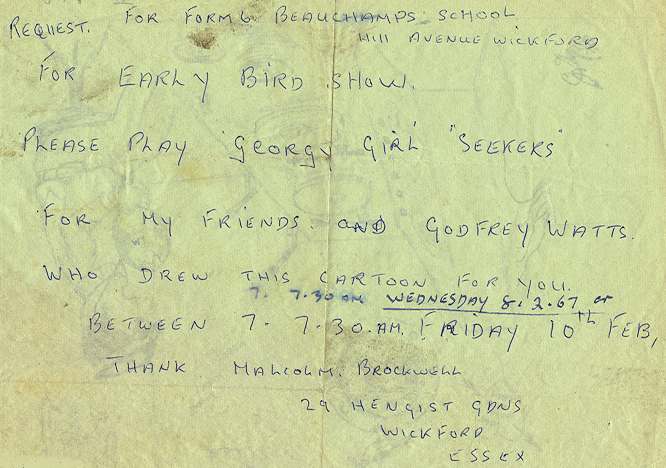 REQUEST. FOR FORM 6 BEAUCHAMPS SCHOOL
HILL AVENUE WICKFORD
FOR EARLY BIRD SHOW.
PLEASE PLAY 'GEORGY GIRL' "SEEKERS"
FOR MY FRIENDS. AND GODFREY WATTS.
WHO DREW THIS CARTOON FOR YOU.
7. 7.30 AM WEDNESDAY 8.2.67 or
BETWEEN 7. 7.30. AM. FRIDAY 10TH FEB,
THANK MALCOLM. BROCKWELL
29 HENGIST GDNS
WICKFORD
ESSEX